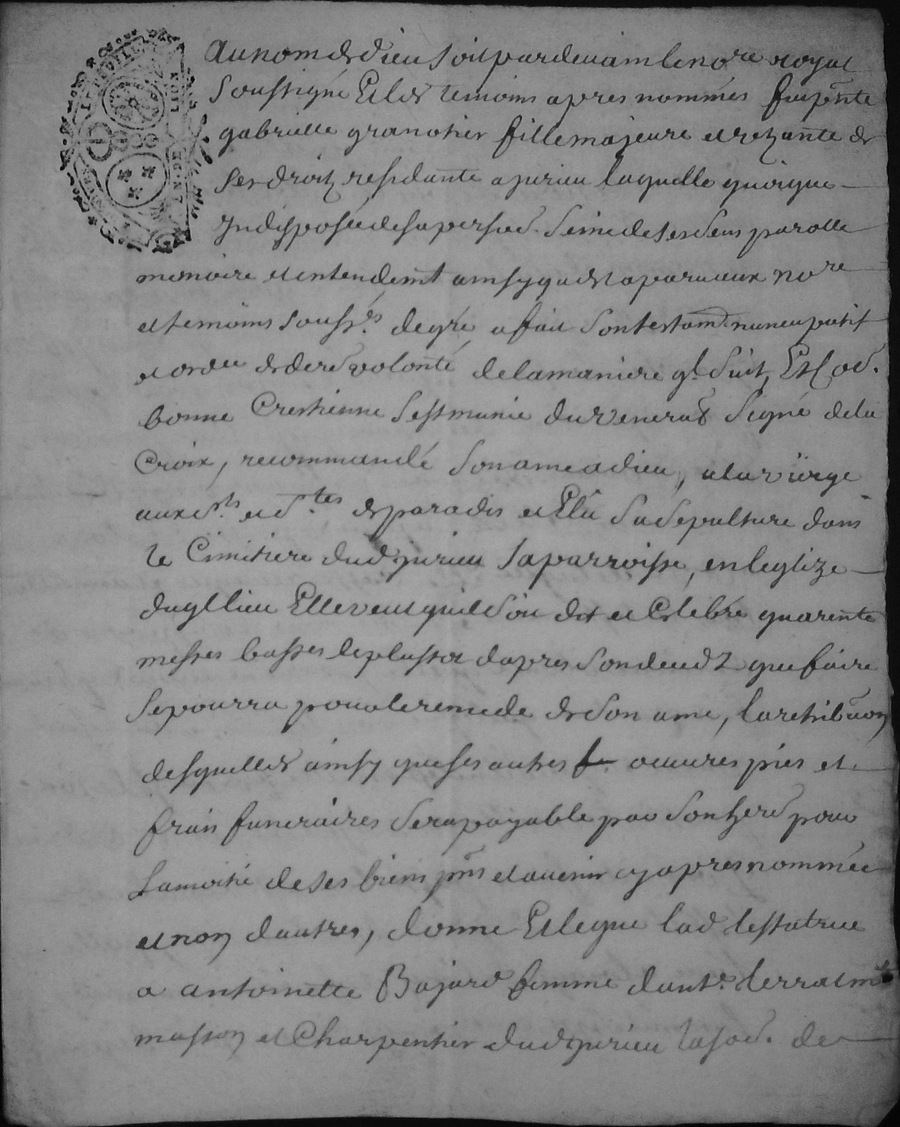 au nom de dieu soit par devam le no.re royal
Soussigné Et les temoins apres nommés fut p.nte
gabrielle granotier fille majeure et uzante de
ses droitz residante a jurieu laquelle quoique
Indisposée de sa perso.e seine de ses sens parolle
memoire et entendem.t ainsy qu'est aparu aux no.re
et temoins souss.es de gré a fait son testam.t nuncupatif
et ordre de dere volonté de la maniere q.l suit, Et Co.e
bonne Crestienne s'est munie du venerab. Signe de la
Croix, recommandé son ame a dieu, a la vierge
aux S.ts et S.tes de paradis et Elu sa sepulture dans
le Cimitiere dud jurieu sa parroisse, en leglize
du q.l lieu Elle veut quil soit dit et Celebré quarente
messes basses le plustot dapres son deced z que faire
se pourra pour le remede de son ame, la retribu.on
desquelles ainsy que ses autres oeuvres pies et
frais funeraires sera payable par son her.e pour
la moitié de ses biens p.ns et avenir cy apres nommée
et non dautres, donne Et legue lad testatrice
a antoinette Bajard femme d'ant.e terrat m.e
masson et Charpentier dud jurieu la so.e de